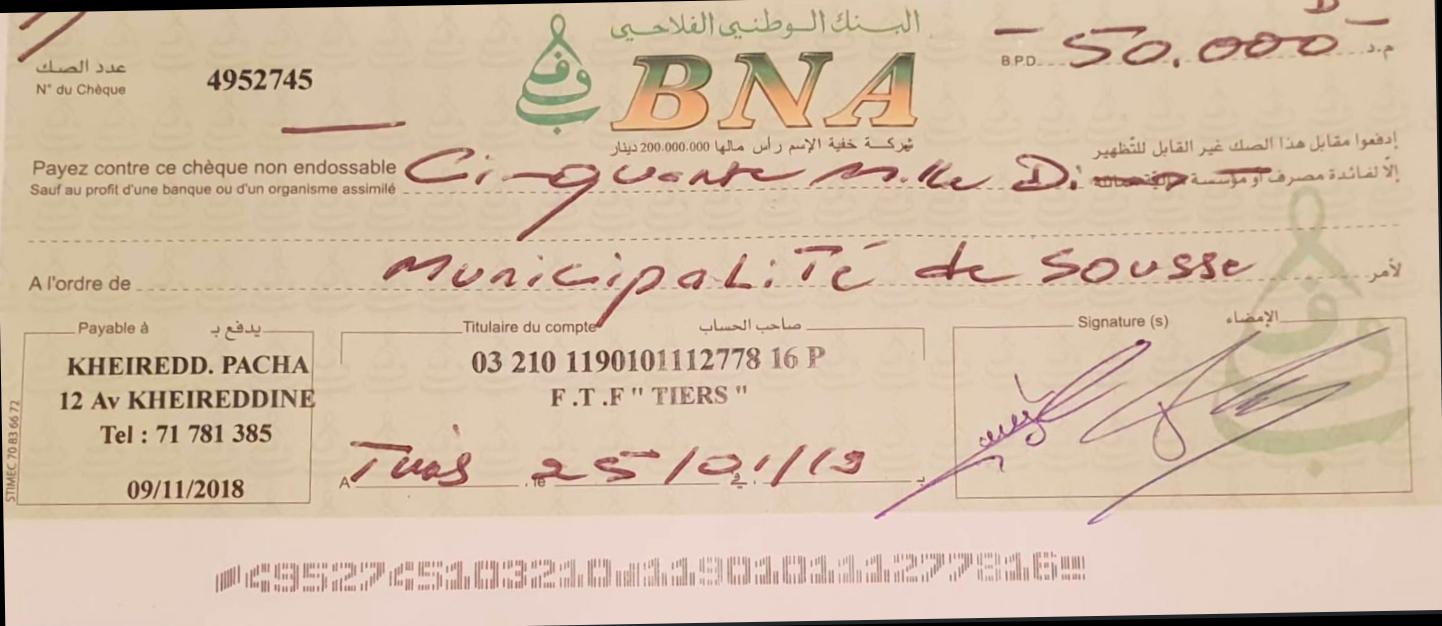 البنك الوطني الفلاحي
BNA
شركة خفية الإسم رأس مالها 200.000.000 دينار
عدد الصك
N° du Chèque
4952745
B.P.D. 50.000 D م.د
Payez contre ce chèque non endossable
Sauf au profit d'une banque ou d'un organisme assimilé
Cinquante Mille D.
إدفعوا مقابل هذا الصك غير القابل للتّظهير
إلّا لفائدة مصرف أو مؤسسة
A l'ordre de Municipalité de Sousse لأمر
Payable à يدفع بـ
KHEIREDD. PACHA
12 Av KHEIREDDINE
Tel : 71 781 385
09/11/2018
Titulaire du compte صاحب الحساب
03 210 1190101112778 16 P
F .T .F " TIERS "
A Tunis , le 25/01/19 في بـ
Signature (s) الإمضاء
STIMEC 70 83 66 72
4952745103210 119010111277816